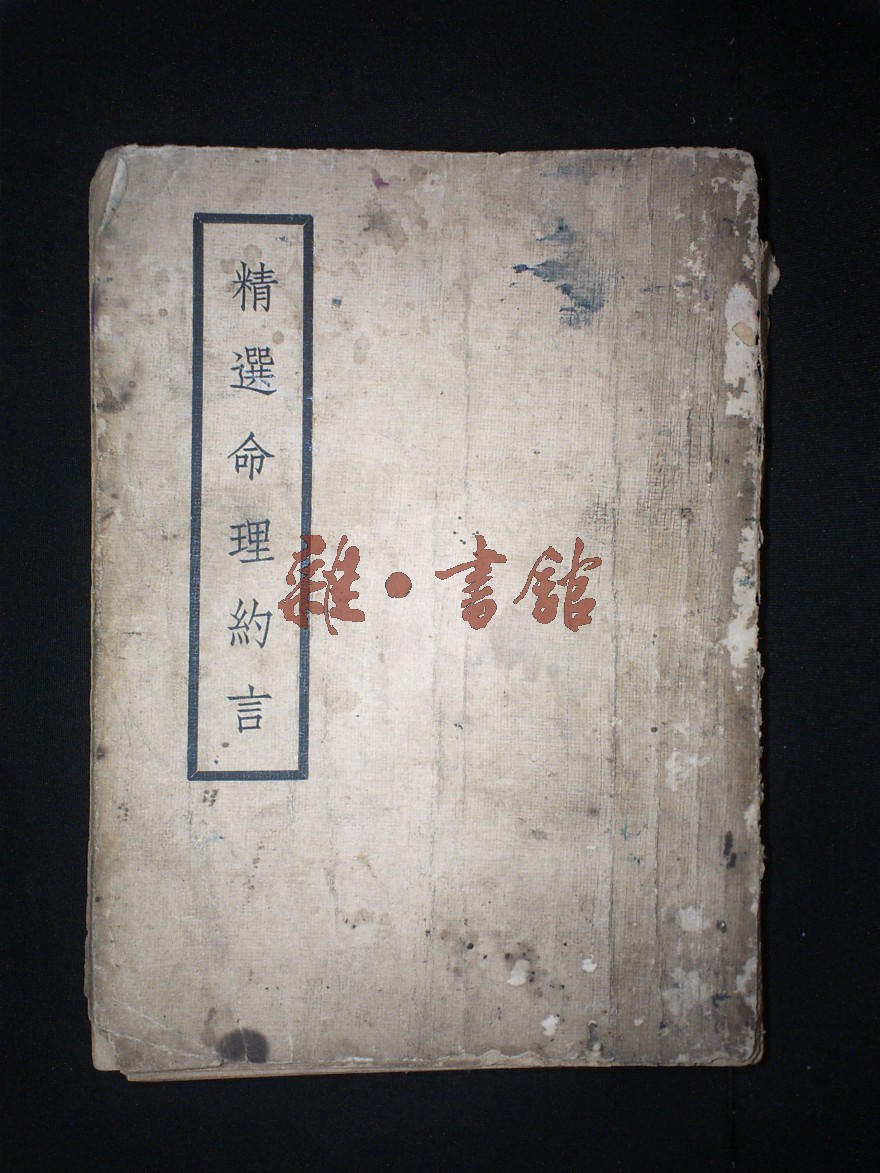 精選命理約言
雜·書館